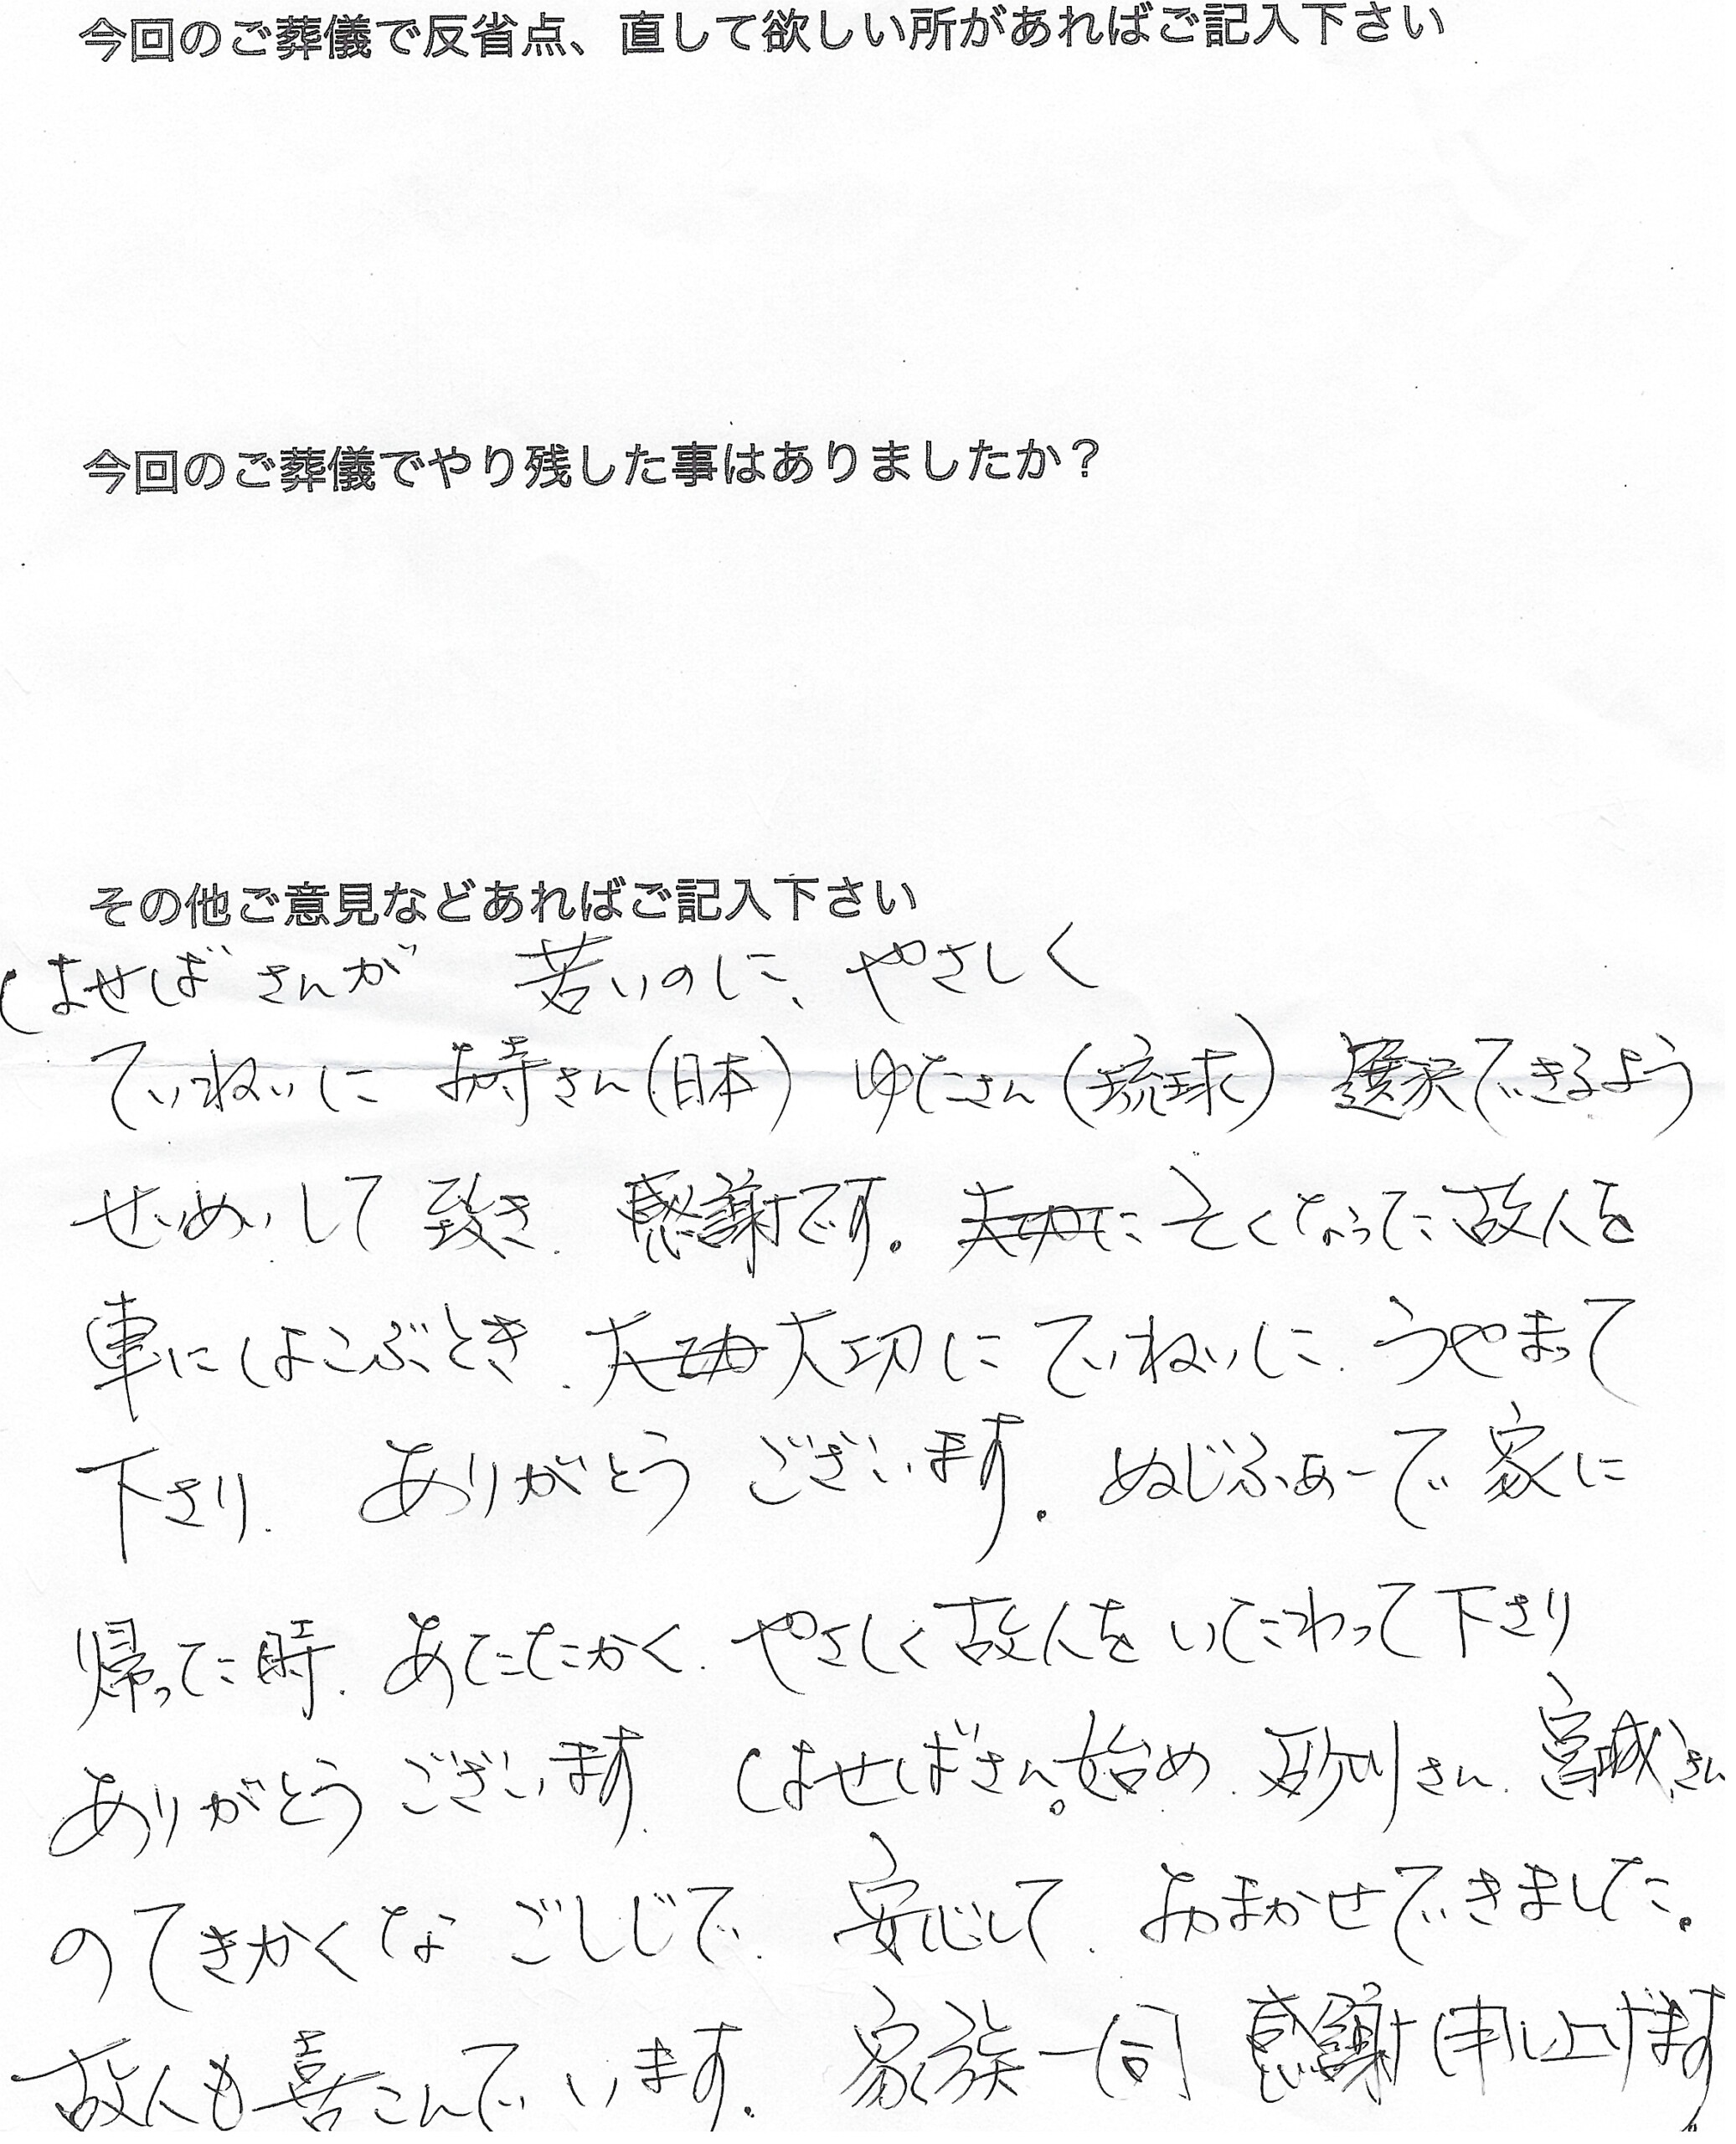 今回のご葬儀で反省点、直して欲しい所があればご記入下さい
今回のご葬儀でやり残した事はありましたか？
その他ご意見などあればご記入下さい
はせばさんが 若いのに、やさしく
ていねいに お寺さん(日本) ゆたさん(琉球) 選択できるよう
せいめいして 致き、感謝です。 大切に そくなった故人を
車にはこぶとき、大切 大切に ていねいに、うやまって
下さり、ありがとうございます。ぬじふぁーで 家に
帰った時、あたたかく、やさしく故人を いたわって下さり
ありがとうございます。はせばさん。始め、さん、宮城さん
のてきかくな ごしじで、安心して、おまかせできました。
故人も喜こんでいます。 家族一同 感謝申し上げます。